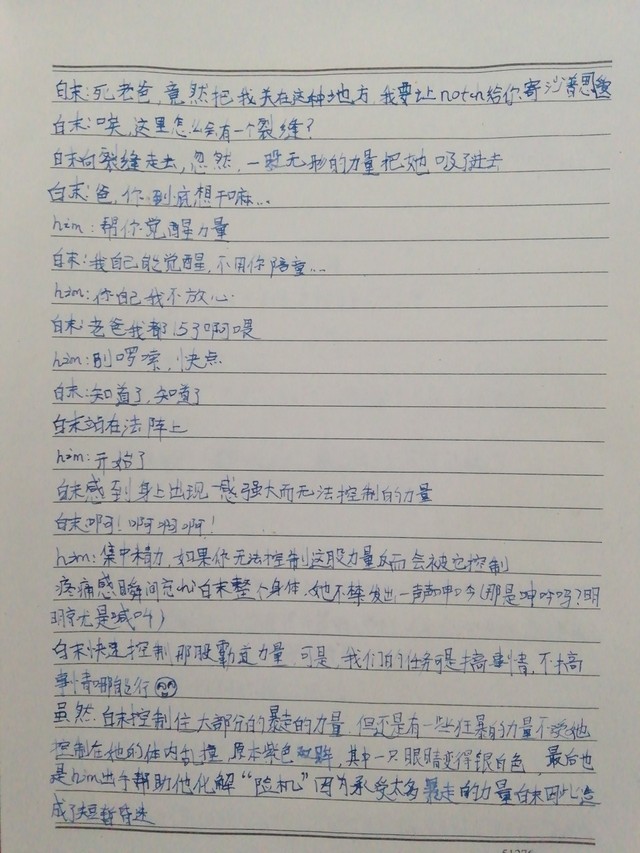 白末:死老爸,竟然把我关在这种地方,我要让notch给你寄沙普思
白末:唉,这里怎么会有一个裂缝?
白末向裂缝走去,忽然,一股无形的力量把她吸了进去
白末:爸,你到底想干嘛...
him:帮你觉醒力量
白末:我自己能觉醒,不用你陪童...
him:你自己我不放心
白末:老爸我都15了啊喂
him:别啰嗦,快点
白末:知道了,知道了
白末站在法阵上
him:开始了
白末感到身上出现一感强大而无法控制的力量
白末:啊!啊啊啊!
him:集中精力,如果你无法控制这股力量反而会被它控制
疼痛感瞬间充chi白末整个身体,她不禁发出一声声呻吟(那是呻吟吗?明
明就是喊叫)
白末快速控制那股霸道力量,可是,我们的任务可是搞事情,不搞
事情哪能行
虽然,白末控制住大部分的暴走的力量,但还是有一些狂暴的力量不受她
控制在她的体内乱撞,原本紫色双眸,其中一只眼睛变得银白色,最后也
是him出手帮助他化解“险机”因为承受太多暴走的力量白末因此造
成了短暂昏迷